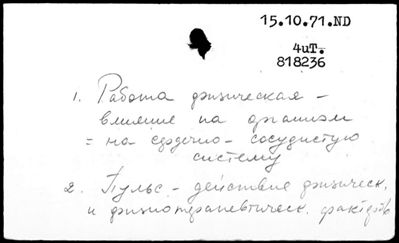 15.10.71.ND
4иТ.
818236
1. Работа физическая –
влияние на организм
= на сердечно-сосудистую
систему
2. Пульс – действие физическ.
и физиотерапевтическ. факторов